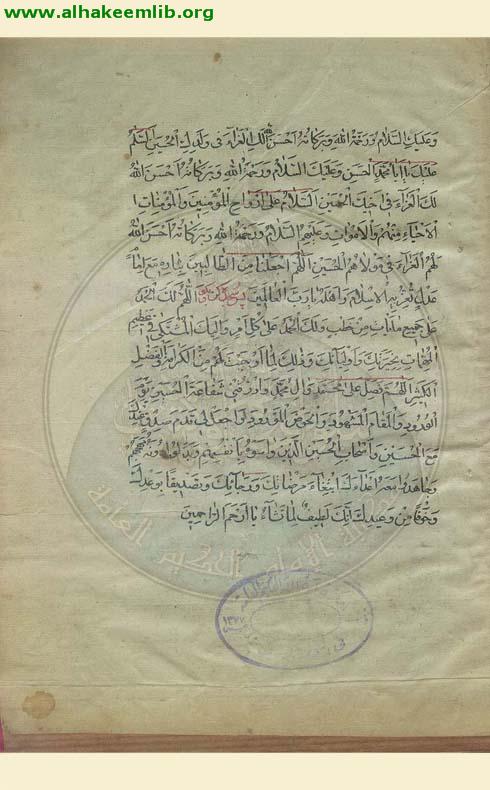 www.alhakeemlib.org
وعليك السلام ورحمة الله وبركاته احسن الله لك العزاء فى ولدك الحسين السلم
عليك يا ابا محمد الحسن وعليك السلام ورحمة الله وبركاته احسن الله
لك العزاء فى اخيك الحسين السلام على ارواح المؤمنين والمؤمنات
الاحياء منهم والاموات وعليهم السلام ورحمة الله وبركاته احسن الله
لهم العزاء فى مولاهم الحسين اللهم اجعلنا من الطالبين بثاره مع امام
عدل تعز به الاسلام واهله يا رب العالمين اللهم لك الحمد
على جميع ما ناب من خطب ولك الحمد على كل امر واليك المشتكى فى عظيم
المهمات بخيرتك واوليائك وذلك لما اوجبت لهم من الكرامة والفضل
الكثير اللهم فصل على محمد وال محمد وارزقنى شفاعة الحسين يوم
الورود والمقام المشهود والحوض المورود واجعل لى قدم صدق عندك
مع الحسين واصحاب الحسين الذين واسوه بانفسهم وبذلوا دونه مهجهم
وجاهدوا معه اعداءك ابتغاء مرضاتك ورجائك وتصديقا بوعدك
وخوفا من وعيدك انك لطيف لما تشاء يا ارحم الراحمين